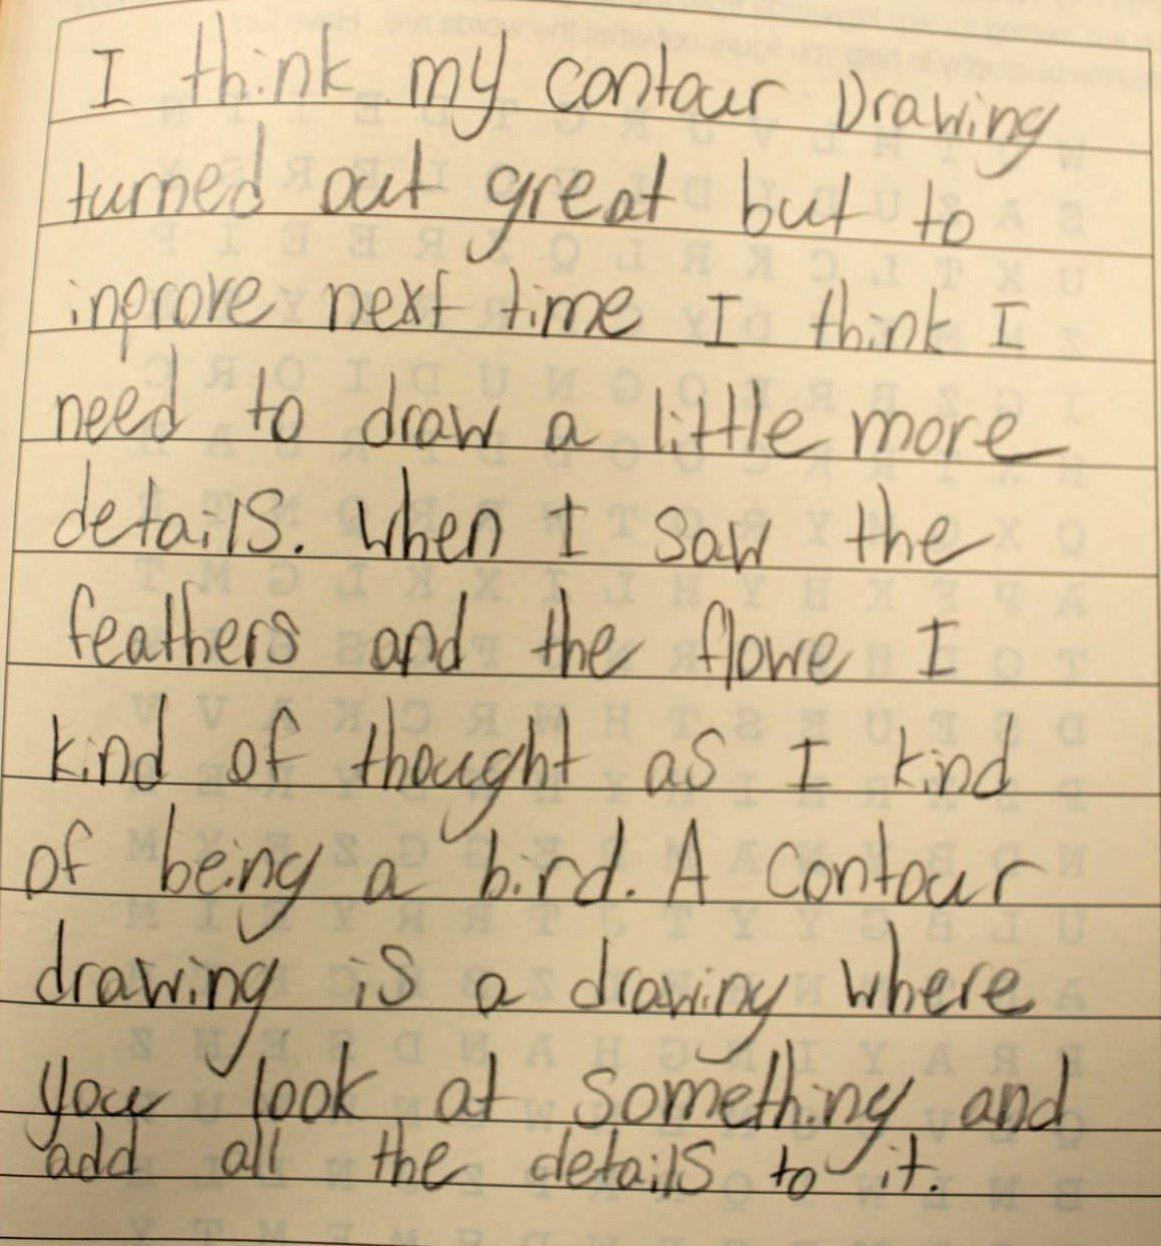 I think my contour Drawing
turned out great but to
inprove next time I think I
need to draw a little more
details. when I saw the
feathers and the flowe I
kind of thought as I kind
of being a bird. A contour
drawing is a drawing where
you look at something and
add all the details to it.